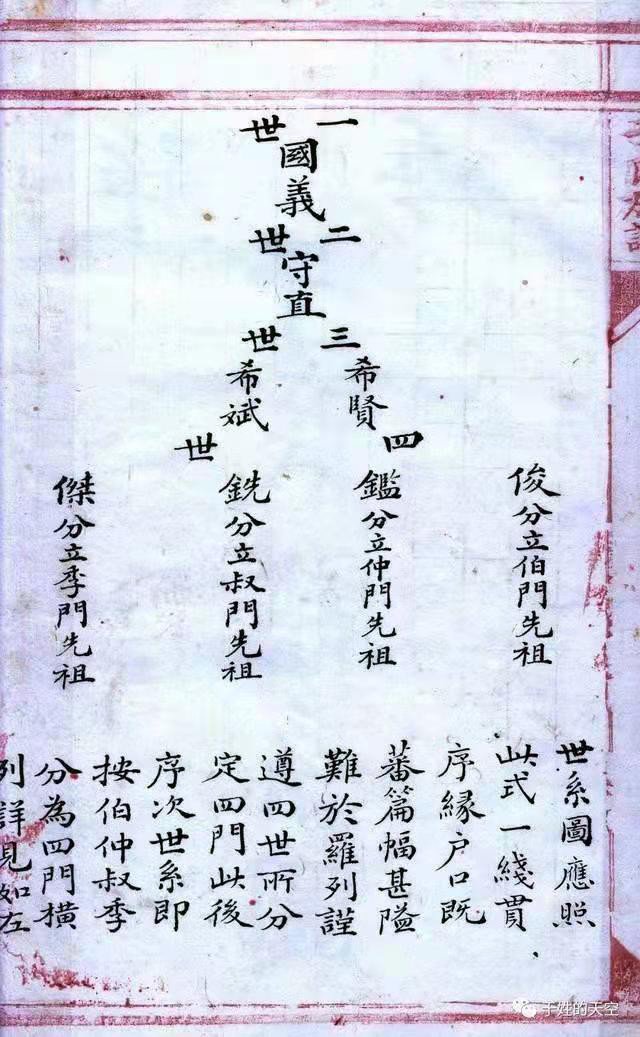 一世
國義
二世
守直
三世
希賢
希斌
四世
俊分立伯門先祖
鑑分立仲門先祖
銑分立叔門先祖
傑分立季門先祖
世系圖應照
此式一綫貫、
序緣户口既
蕃篇幅甚隘
難於羅列謹
遵四世所分
定四門此後
序次世系即
按伯仲叔季
分為四門橫
列詳見如左
于姓的天空